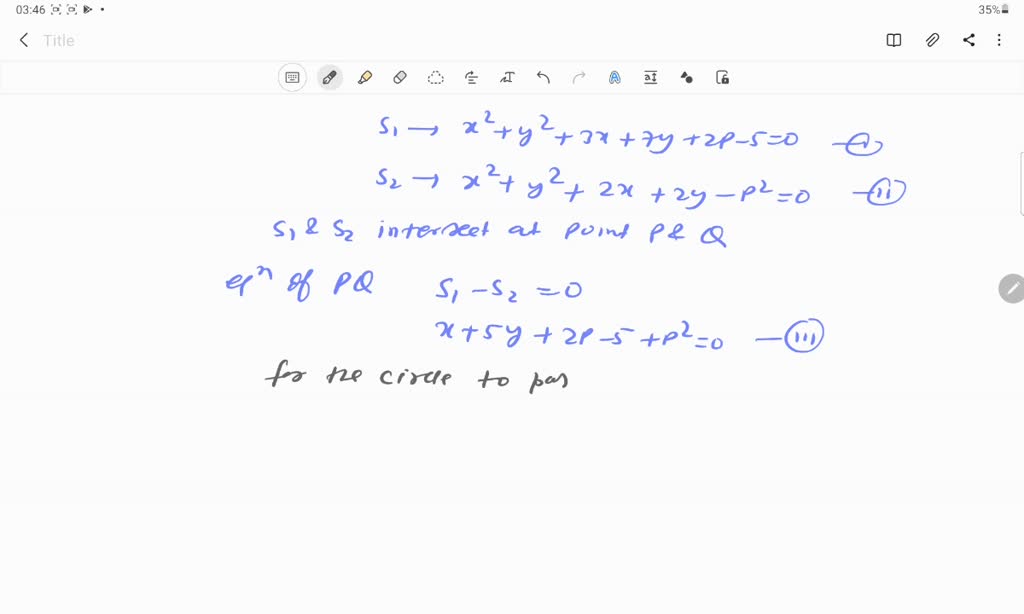 03:46 35%
Title
S₁ → x²+y²+3x+7y+2P-5=0 —(i)
S₂ → x²+y²+2x+2y-P²=0 —(ii)
S₁ & S₂ intersect at point P & Q
eqⁿ of PQ S₁-S₂=0
x+5y+2P-5+P²=0 —(iii)
for the circle to pas